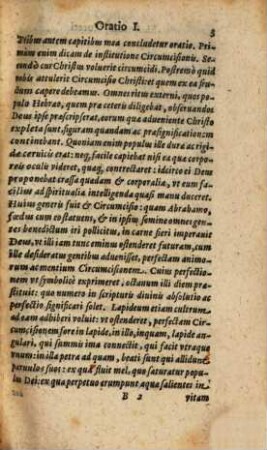 Oratio I. 3
Tribus autem capitibus mea concludetur oratio. Pri-
mùm enim dicam de institutione Circumcisionis. Se-
cundò cur Christus voluerit circumcidi. Postremò quid
nobis attulerit Circumcisio Christi: et quem ex ea fru-
ctum capere debeamus. Omnes ritus externi, quos popu-
lo Hebræo, quem præ ceteris diligebat, obseruandos
Deus ipse præscripserat, eorum quæ adueniente Christo
expleta sunt figuram quandam ac præsignificationem
continebant. Quoniam enim populus ille dura ac rigi-
da ceruicis erat: neq, facilè capiebat nisi ea quæ corpo-
reis oculis videret, quæq, contrectaret: idcirco ei Deus
proponebat crassa quædam & corporalia, vt eum fa-
cilius ad spiritualia intelligenda quasi manu duceret.
Huius generis fuit & Circumcisio: quam Abrahamo,
fœdus cum eo statuens, & in ipsius semine omnes gen-
tes benedictum iri pollicitus, in carne fieri imperauit
Deus, vt illi iam tunc eminus ostenderet futuram, cum
ille desideratus gentibus aduenisset, perfectam animo-
rum ac mentium Circumcisionem. Cuius perfectio-
nem vt symbolicè exprimeret, octauum illi diem præ-
stituit: quo numero in scripturis diuinis absolutio ac
perfectio significari solet. Lapideum etiam cultrum
ad eam adhiberi voluit: vt ostenderet, perfectam Cir-
cumcisionem fore in lapide, in illo, inquam, lapide an-
gulari, qui summus ima connectit, qui facit vtraque
vnum: in illa petra ad quam, beati sunt qui allidunt
paruulos suos: ex qua fluit mel, quo saturatur popu-
lus Dei: ex qua perpetuò erumpunt aquæ salientes in
B 2 vitam